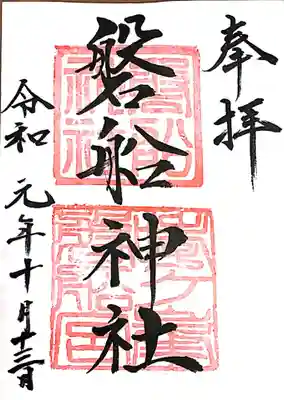 奉拝
磐船神社
令和元年十月十三日